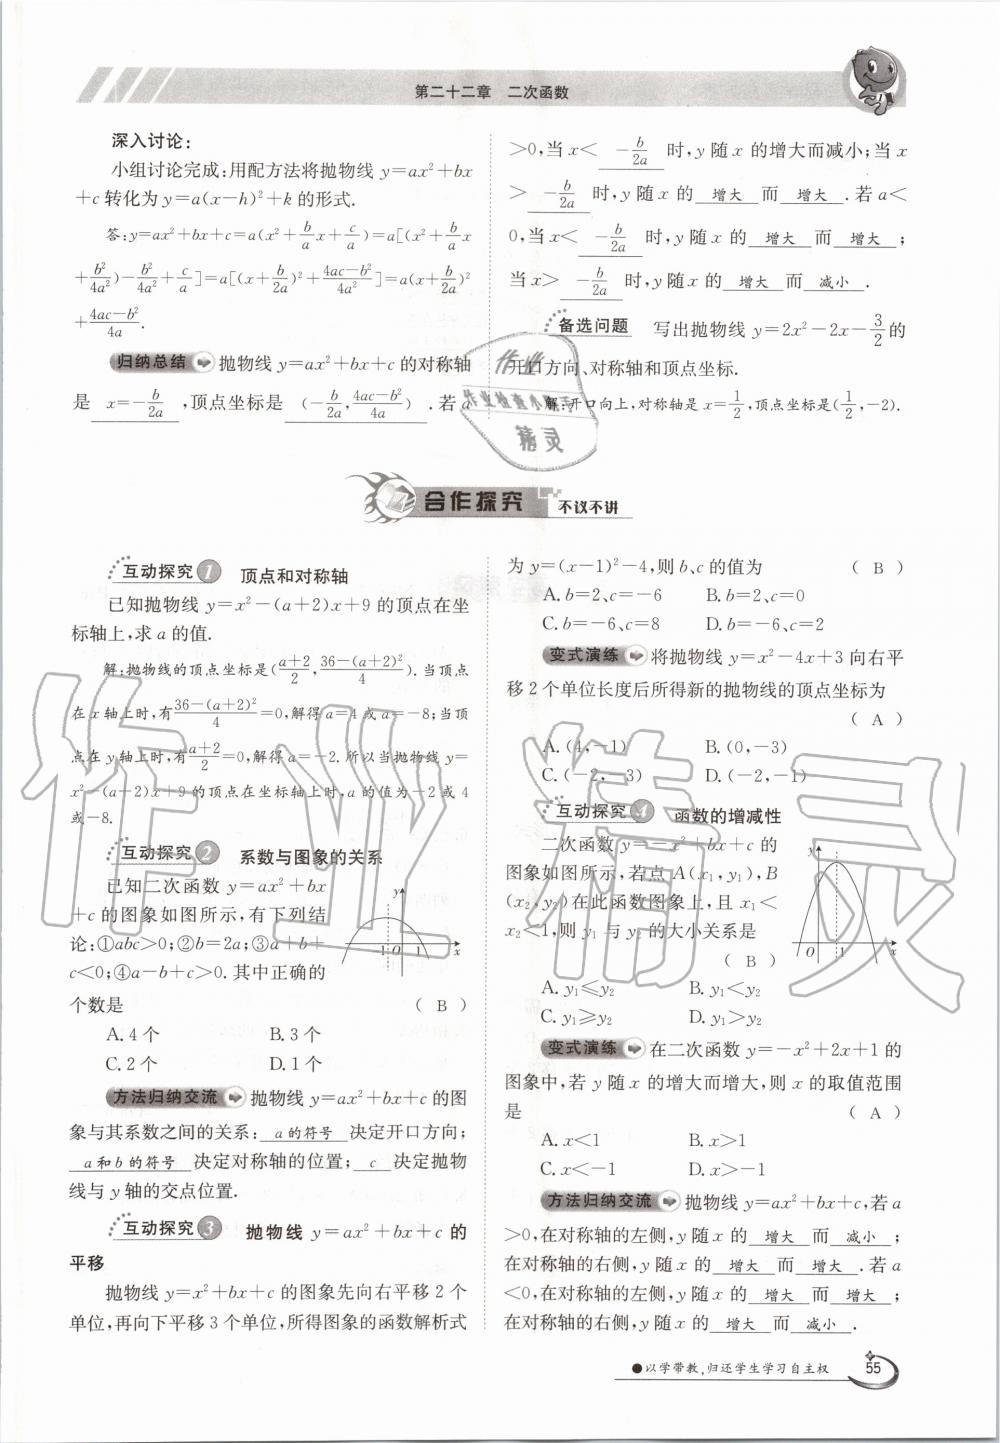 第二十二章　二次函数
深入讨论:
小组讨论完成:用配方法将抛物线 y=ax²+bx
+c 转化为 y=a(x-h)²+k 的形式.
答:y=ax²+bx+c=a(x²+b/a x+c/a)=a[(x²+b/a x
+b²/4a²)-b²/4a²+c/a]=a[(x+b/2a)²+(4ac-b²)/4a²]=a(x+b/2a)²
+(4ac-b²)/4a.
归纳总结 抛物线 y=ax²+bx+c 的对称轴
是 x=-b/2a ,顶点坐标是 (-b/2a,(4ac-b²)/4a) .若 a
>0,当 x< -b/2a 时,y 随 x 的增大而减小;当 x
> -b/2a 时,y 随 x 的 增大 而 增大 .若 a<
0,当 x< -b/2a 时,y 随 x 的 增大 而 增大 ;
当 x> -b/2a 时,y 随 x 的 增大 而 减小 .
备选问题 写出抛物线 y=2x²-2x-3/2 的
开口方向、对称轴和顶点坐标.
解:开口向上,对称轴是 x=1/2,顶点坐标是(1/2,-2).
合作探究 不议不讲
互动探究 1 顶点和对称轴
已知抛物线 y=x²-(a+2)x+9 的顶点在坐
标轴上,求 a 的值.
解:抛物线的顶点坐标是((a+2)/2,(36-(a+2)²)/4).当顶点
在 x 轴上时,有(36-(a+2)²)/4=0,解得 a=4 或 a=-8;当顶
点在 y 轴上时,有(a+2)/2=0,解得 a=-2.所以当抛物线 y=
x²-(a+2)x+9 的顶点在坐标轴上时,a 的值为-2 或 4
或-8.
互动探究 2 系数与图象的关系
已知二次函数 y=ax²+bx
+c 的图象如图所示,有下列结
论:①abc>0;②b=2a;③a+b+
c<0;④a-b+c>0.其中正确的
个数是 ( B )
y
-1 O 1 x
A.4 个 B.3 个
C.2 个 D.1 个
方法归纳交流 抛物线 y=ax²+bx+c 的图
象与其系数之间的关系: a 的符号 决定开口方向;
a 和 b 的符号 决定对称轴的位置; c 决定抛物
线与 y 轴的交点位置.
互动探究 3 抛物线 y=ax²+bx+c 的
平移
抛物线 y=x²+bx+c 的图象先向右平移 2 个
单位,再向下平移 3 个单位,所得图象的函数解析式
为 y=(x-1)²-4,则 b、c 的值为 ( B )
A.b=2、c=-6 B.b=2、c=0
C.b=-6、c=8 D.b=-6、c=2
变式演练 将抛物线 y=x²-4x+3 向右平
移 2 个单位长度后所得新的抛物线的顶点坐标为
( A )
A.(4,-1) B.(0,-3)
C.(-2,-3) D.(-2,-1)
互动探究 4 函数的增减性
二次函数 y=-x²+bx+c 的
图象如图所示,若点 A(x₁,y₁),B
(x₂,y₂)在此函数图象上,且 x₁<
x₂<1,则 y₁ 与 y₂ 的大小关系是
( B )
y
O 1 x
A.y₁≤y₂ B.y₁<y₂
C.y₁≥y₂ D.y₁>y₂
变式演练 在二次函数 y=-x²+2x+1 的
图象中,若 y 随 x 的增大而增大,则 x 的取值范围
是 ( A )
A.x<1 B.x>1
C.x<-1 D.x>-1
方法归纳交流 抛物线 y=ax²+bx+c,若 a
>0,在对称轴的左侧,y 随 x 的 增大 而 减小 ;
在对称轴的右侧,y 随 x 的 增大 而 增大 .若 a
<0,在对称轴的左侧,y 随 x 的 增大 而 增大 ;
在对称轴的右侧,y 随 x 的 增大 而 减小 .
●以学带教,归还学生学习自主权
55
作业精灵
作业
作业检查小助手
精灵